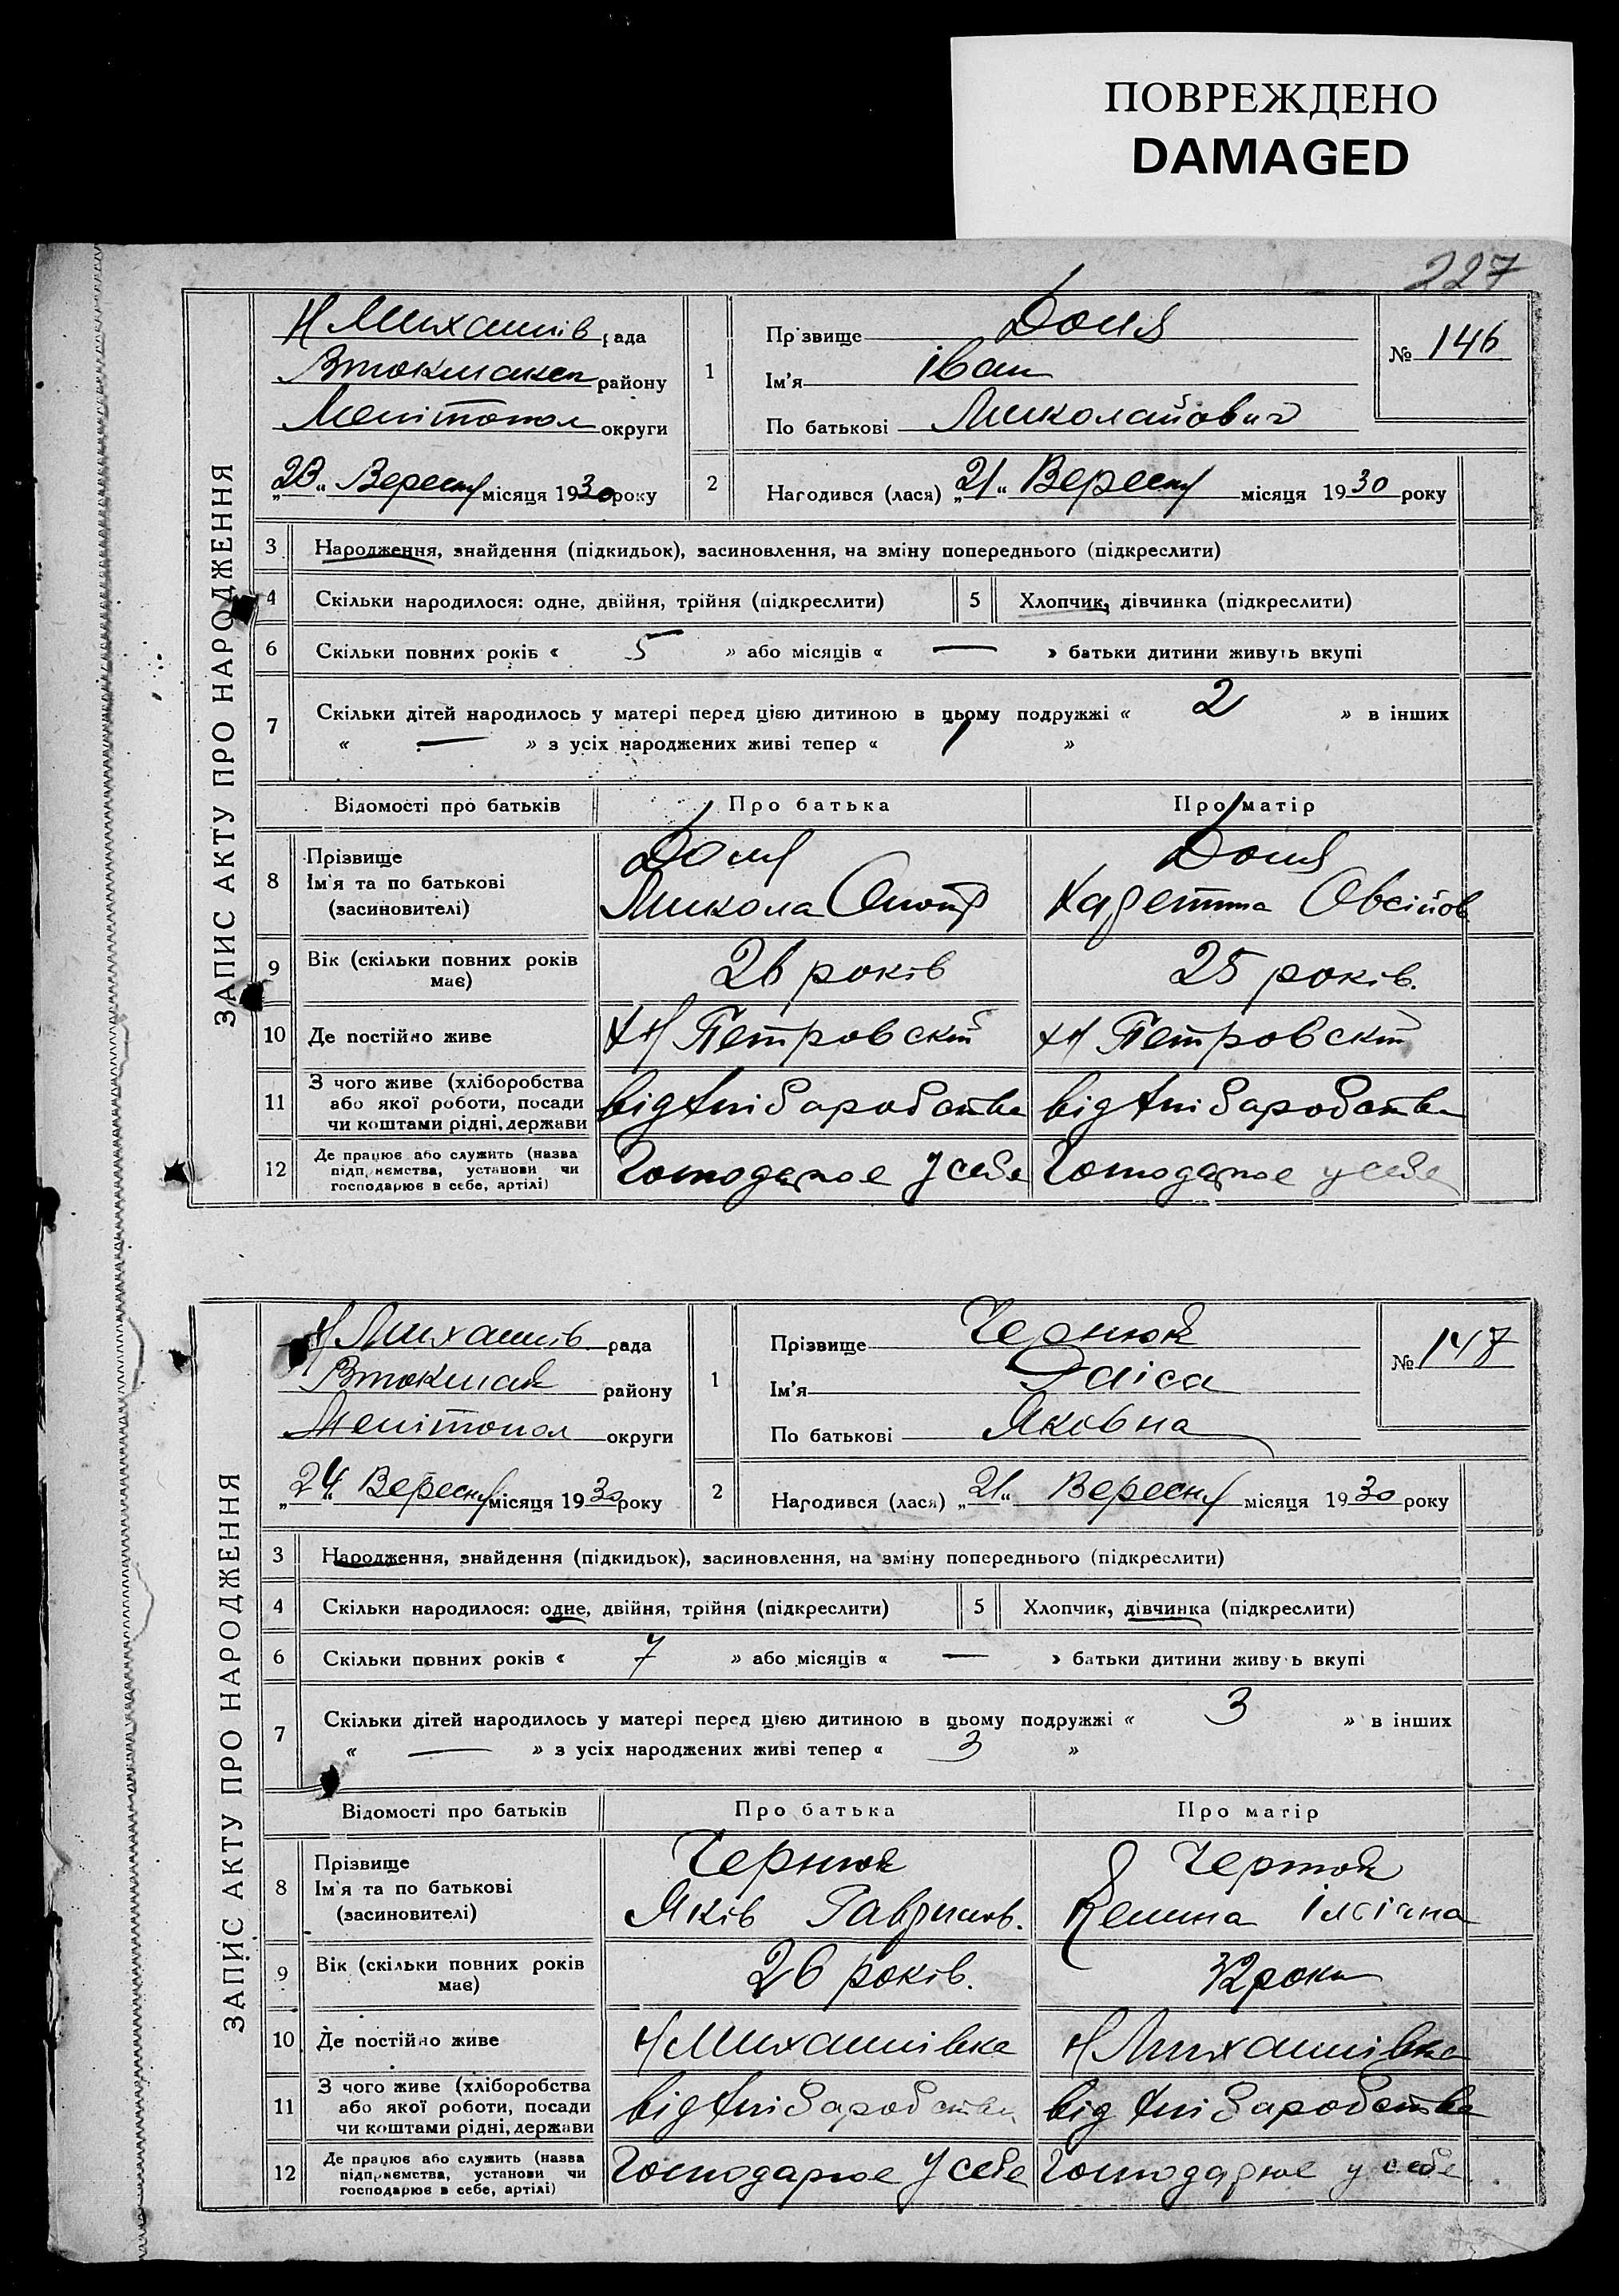 ПОВРЕЖДЕНО
DAMAGED
227
ЗАПИС АКТУ ПРО НАРОДЖЕННЯ
Н Михайлів рада
Втокмакск району
Мелітопол округи
„23“ Вересня місяця 1930 року
1
Прізвище Доля
Ім'я Іван
По батькові Миколайович
№ 146
2
Народився (лася) „21“ Вересня місяця 1930 року
3 Народження, знайдення (підкидьок), засиновлення, на зміну попереднього (підкреслити)
4 Скільки народилося: одне, двійня, трійня (підкреслити)
5 Хлопчик, дівчинка (підкреслити)
6 Скільки повних років « 5 » або місяців « — » батьки дитини живуть вкупі
7 Скільки дітей народилось у матері перед цією дитиною в цьому подружжі « 2 » в інших
« — » з усіх народжених живі тепер « »
Відомості про батьків Про батька Про матір
8 Прізвище
Ім'я та по батькові
(засновителі)
Доля
Микола
Доля
Овсійов
9 Вік (скільки повних років
має)
26 років
25 років.
10 Де постійно живе
Петровский
Петровский
11 З чого живе (хліборобства
або якої роботи, посади
чи коштами рідні, держави
від хліборобства
від хліборобства
12 Де працює або служить (назва
підприємства, установи чи
господарює в себе, артілі)
Господарює у себе
Господарює у себе
ЗАПИС АКТУ ПРО НАРОДЖЕННЯ
Н Михайлів рада
Втокмак району
Мелітопол округи
„24“ Вересня місяця 1930 року
1
Прізвище Чернюк
Ім'я Раіса
По батькові Яковна
№ 147
2
Народився (лася) „21“ Вересня місяця 1930 року
3 Народження, знайдення (підкидьок), засиновлення, на зміну попереднього (підкреслити)
4 Скільки народилося: одне, двійня, трійня (підкреслити)
5 Хлопчик, дівчинка (підкреслити)
6 Скільки повних років « 7 » або місяців « — » батьки дитини живуть вкупі
7 Скільки дітей народилось у матері перед цією дитиною в цьому подружжі « 3 » в інших
« — » з усіх народжених живі тепер « 3 »
Відомості про батьків Про батька Про матір
8 Прізвище
Ім'я та по батькові
(засиновителі)
Чернюк
Яків Гаврилов.
Чернюк
9 Вік (скільки повних років
має)
26 років.
32 роки
10 Де постійно живе
Н Михайлівка
Н Михайлівка
11 З чого живе (хліборобства
або якої роботи, посади
чи коштами рідні, держави
від хліборобства
від хліборобства
12 Де працює або служить (назва
підприємства, установи чи
господарює в себе, артілі)
Господарює у себе
Господарює у себе